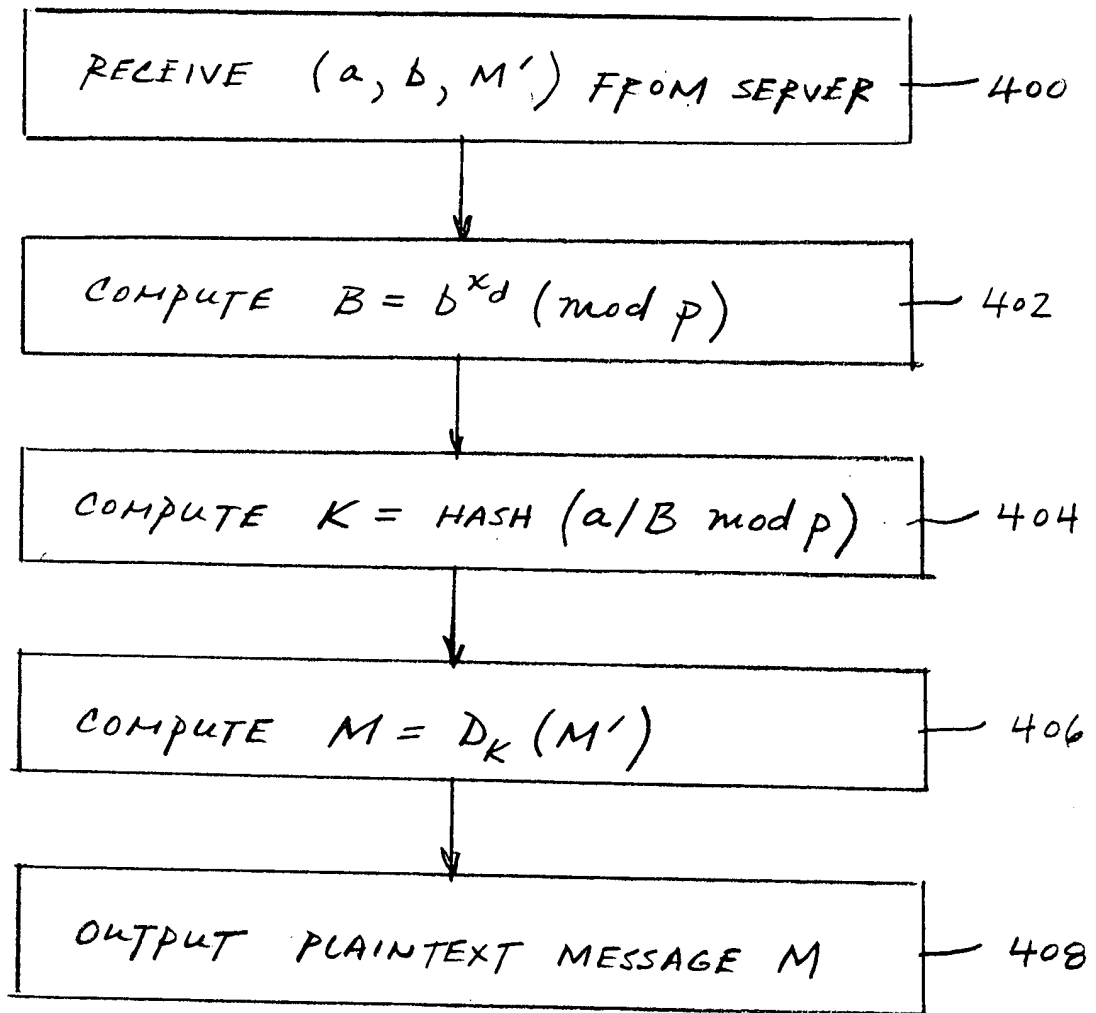 RECEIVE (a, b, M′) FROM SERVER 400
COMPUTE B = b^{x_d} (mod p) 402
COMPUTE K = HASH (a/B mod p) 404
COMPUTE M = D_K (M′) 406
OUTPUT PLAINTEXT MESSAGE M 408